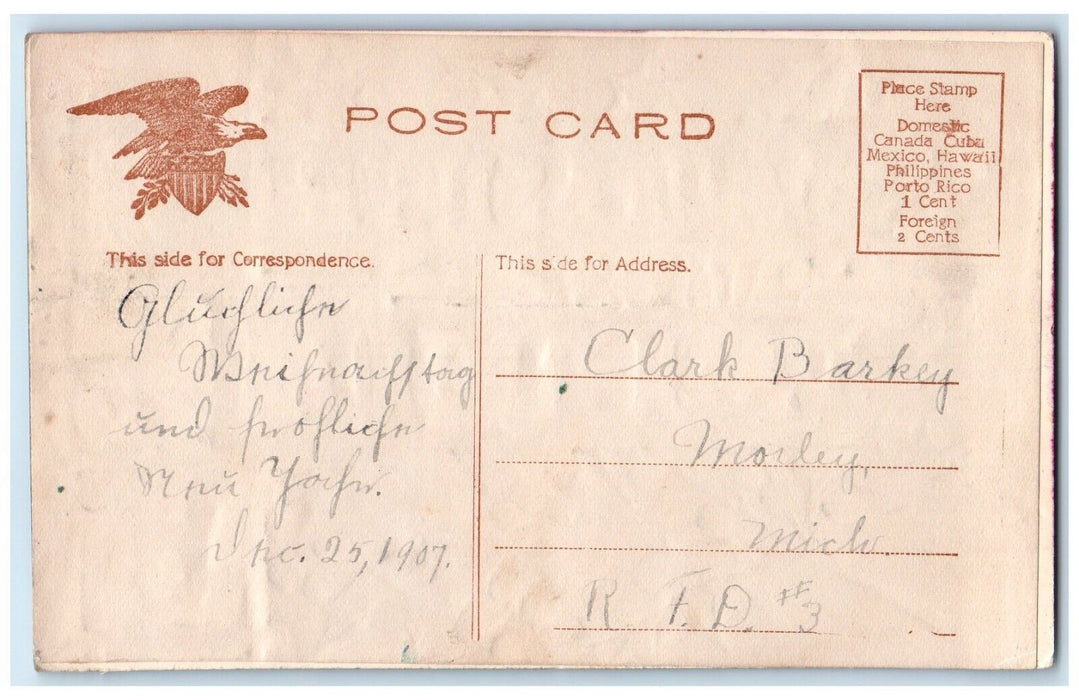 POST CARD
Place Stamp
Here
Domestic
Canada Cuba
Mexico, Hawaii
Philippines
Porto Rico
1 Cent
Foreign
2 Cents
This side for Correspondence.
Glückliche
Weihnachtstag
und fröhliche
Neu Jahr.
Dec. 25, 1907.
This side for Address.
Clark Barkey
Morley,
Mich.
R. F. D. #3